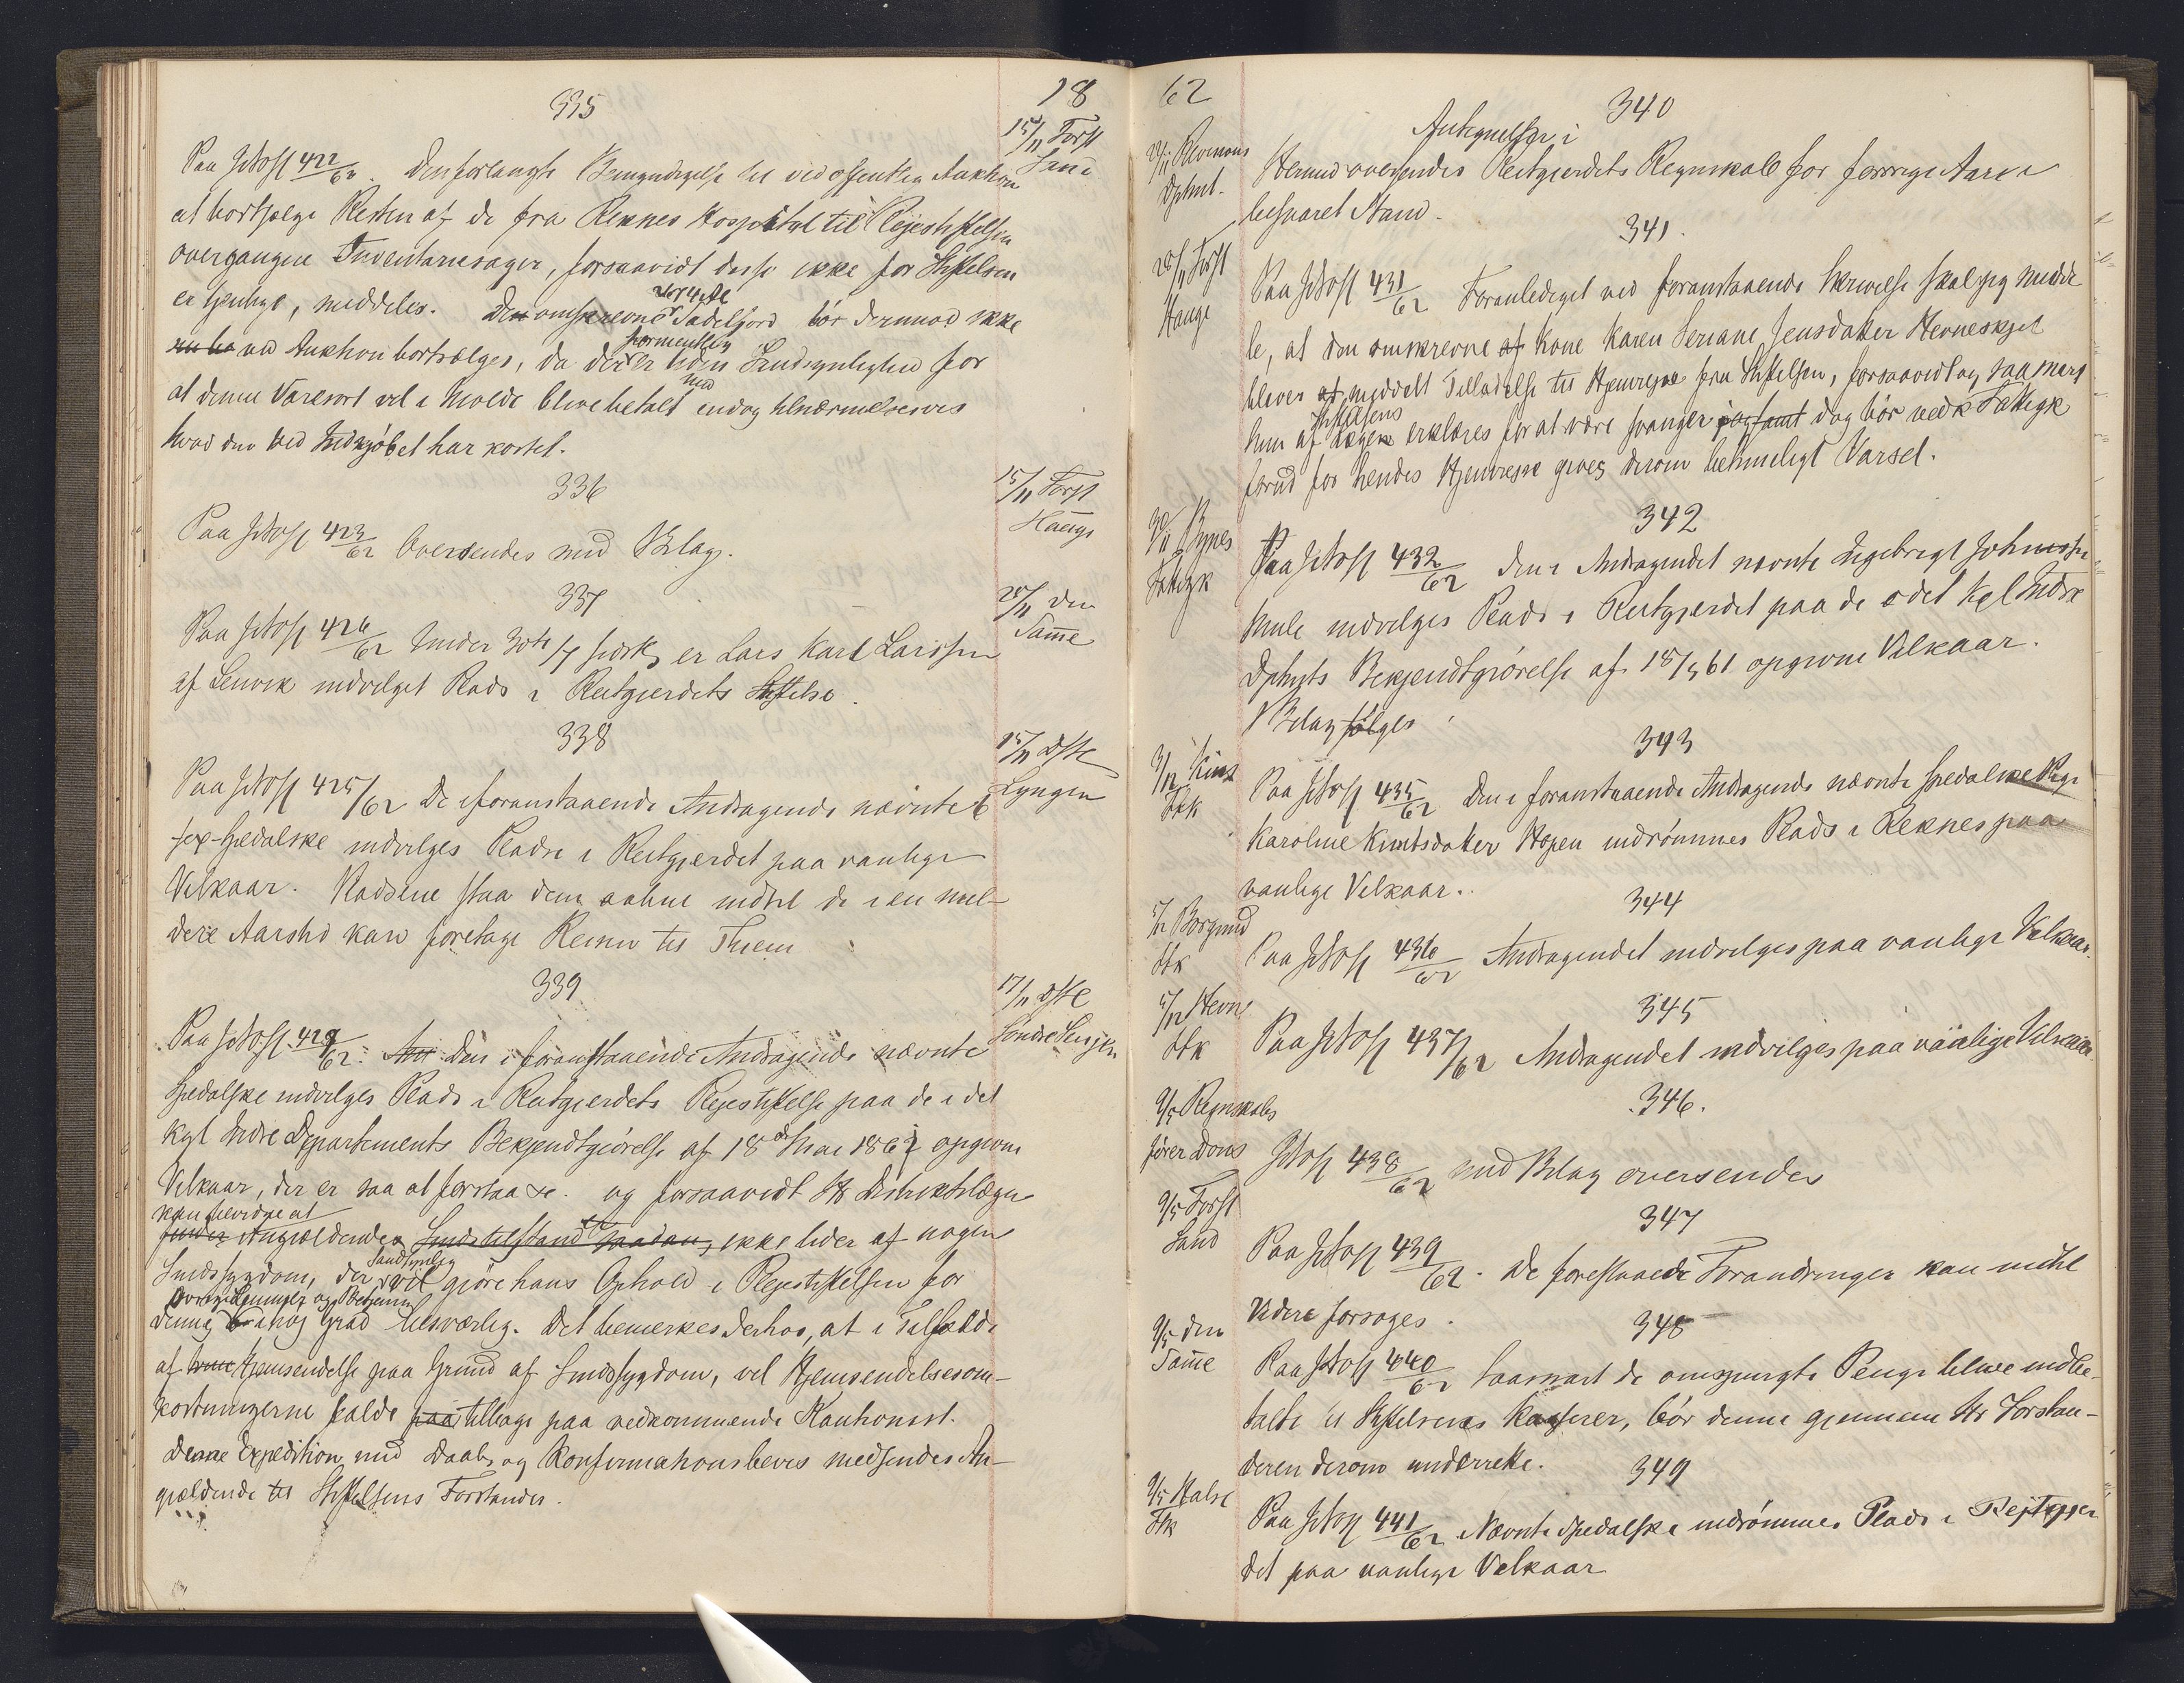 18
335
15/11 Forst
Paa JNo 422/62. Den forlangte Bemyndigelse til ved offentlig Auktion
at bortsælge Resten af de fra Reknes Hospital til Plejestiftelsen
overgangne Inventariesager, forsaavidt disse ikke for Stiftelsen
er tjenlige, meddeles. Den omskrevne Sadelgjord bör derimod ikke
ved Auktion bortsælges, da der er formentlig liden Sandsynlighed for
at denne Varesort vil i Molde blive betalt med endog tilnærmelsesvis
hvad den ved Indkjöbet har kostet.
336
15/11 Forst
Hauge
Paa JNo 423/62 Oversendes med Bilag.
337
28/11 Den
Samme
Paa JNo 426/62 Under 30te/7 er Lars Karl Larssen
af Lenvik indvilget Plads i Reitgjerdets Stiftelse.
338
15/11 Dstl
Lyngen
Paa JNo 425/62 De i foranstaaende Andragende nævnte 6
sex Spedalske indvilges Pladse i Reitgjerdet paa vanlige
Vilkaar. Pladsene staa dem aabne indtil de i en mil-
dere Aarstid kan foretage Reisen til Thjem
339
17/11 Dstl
Söndre Senjen
Paa JNo 429/62. Den i foranstaaende Andragende nævnte
Spedalske indvilges Plads i Reitgjerdets Plejestiftelse paa de i det
Kgl Indre Departements Bekjendtgjörelse af 18de Mai 1861 opgivne
Vilkaar, der er saa at forstaa &c. og forsaavidt Hr Distriktslægen
kan bevidne at
finder Angjældendes Sindstilstand saadan, ikke lider af nogen
Sindssygdom, der sandsynlig vil gjöre hans Ophold i Plejestiftelsen for
denne i höj Grad besværlig. Det bemerkes derhos, at i Tilfælde
af Hjemsendelse paa Grund af Sindssygdom, vil Hjemsendelsesom-
kostningerne falde paa tilbage paa vedkommende Kautionist.
Denne Expedition med Daabs og Konfirmationsbevis medsendes An-
gjældende til Stiftelsens Forstander.
62
340
Dptmt.
Antegnelser i
Hermed oversendes Reitgjerdets Regnskab for forrige Aar i
besvaret Stand.
341.
28/11 Forst
Hauge
Paa JNo 431/62 Foranlediget ved foranstaaende Skrivelse skal jeg medde
le, at den omskrevne af Kone Karen Seriane Jensdatter Hevneskjel
bliver at meddelt Tilladelse til Hjemrejse fra Stiftelsen, forsaavidt og saa snart
hun af Stiftelsens Læge erklæres for at være svanger dog bör vedk Fattigk
forud for hendes Hjemrejse gives derom betimeligt Varsel.
342
30/11 Bynes
Fattigk
Paa JNo 432/62 Den i Andragendet nævnte Ingebrigt Johnsen
Mule indvilges Plads i Reitgjerdet paa de i det Kgl Indre
Dptmts Bekjendtgjörelse af 18/5 61 opgivne Vilkaar.
1 Bilag fölger
343
3/12 Kinn
Ftk
Paa JNo 435/62 Den i foranstaaende Andragende nævnte spedalske Pige
Karoline Knutsdatter Hopen indrömmes Plads i Reknes paa
vanlige Vilkaar.
344
5/12 Borgund
Ftk
Paa JNo 436/62 Andragendet indvilges paa vanlige Vilkaar.
345
5/12 Hevne
Ftk
Paa JNo 437/62 Andragendet indvilges paa vanlige Vilkaar
346.
Regnskabs
förer Dons
JNo 438/62 med Bilag oversendes
347
Forst
Sand
Paa JNo 439/62. De foreslaaede Forandringer kan indtil
Videre forsöges.
348
Den
Samme
Paa JNo 440/62 Saasnart de omspurgte Penge blive indbe-
talte til Stiftelsens Kasserer, bör denne gjennem Hr Forstan-
deren derom underrettes.
349
Halse
Ftk
Paa JNo 441/62 Nævnte Spedalske indrömmes Plads i Rejtgjer
det paa vanlige Vilkaar